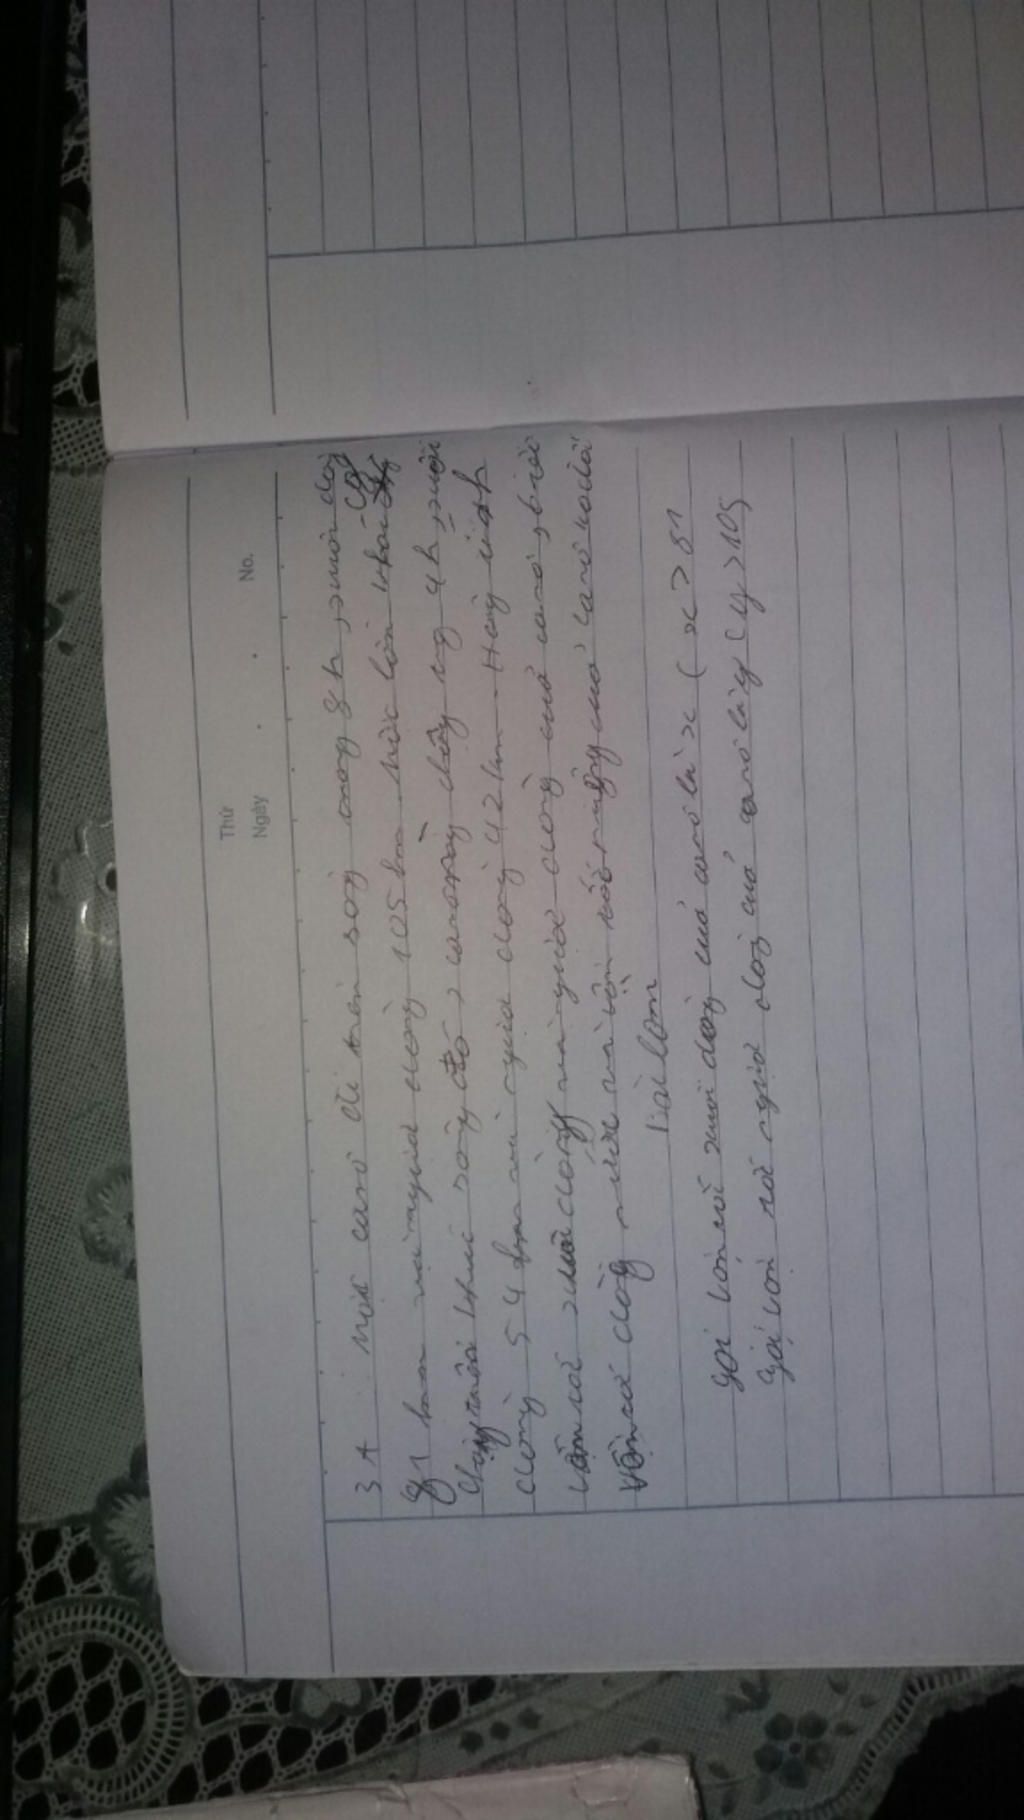 Thứ
Ngày No.
3A một canô đi trên sông trong 8h, xuôi dòng
81 km và ngược dòng 105 km. Một lần khác cũng
chạy trên khúc sông đó, canô này chạy trong 4h, xuôi
dòng 54 km và ngược dòng 42 km. Hãy tính
vận tốc xuôi dòng và ngược dòng của canô, biết
vận tốc dòng nước và vận tốc riêng của canô không đổi
Bài làm
gọi vận tốc xuôi dòng của canô là x (x > 81
gọi vận tốc ngược dòng của canô là y (y > 105